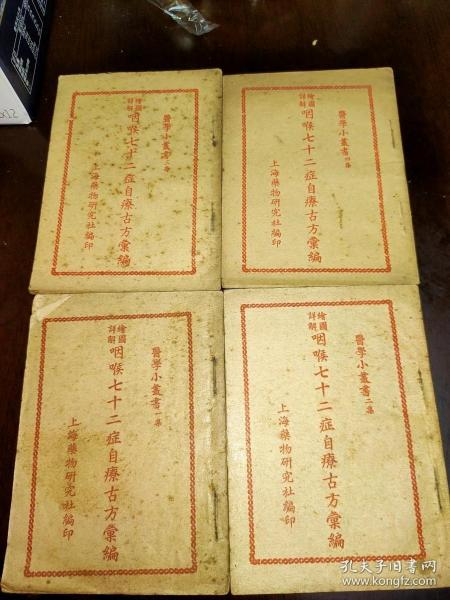 醫學小叢書三集
繪圖詳解
咽喉七十二症自療古方彙編
上海藥物研究社編印
醫學小叢書四集
繪圖詳解
咽喉七十二症自療古方彙編
上海藥物研究社編印
醫學小叢書一集
繪圖詳解
咽喉七十二症自療古方彙編
上海藥物研究社編印
醫學小叢書二集
繪圖詳解
咽喉七十二症自療古方彙編
上海藥物研究社編印
孔夫子旧书网
www.kongfz.com